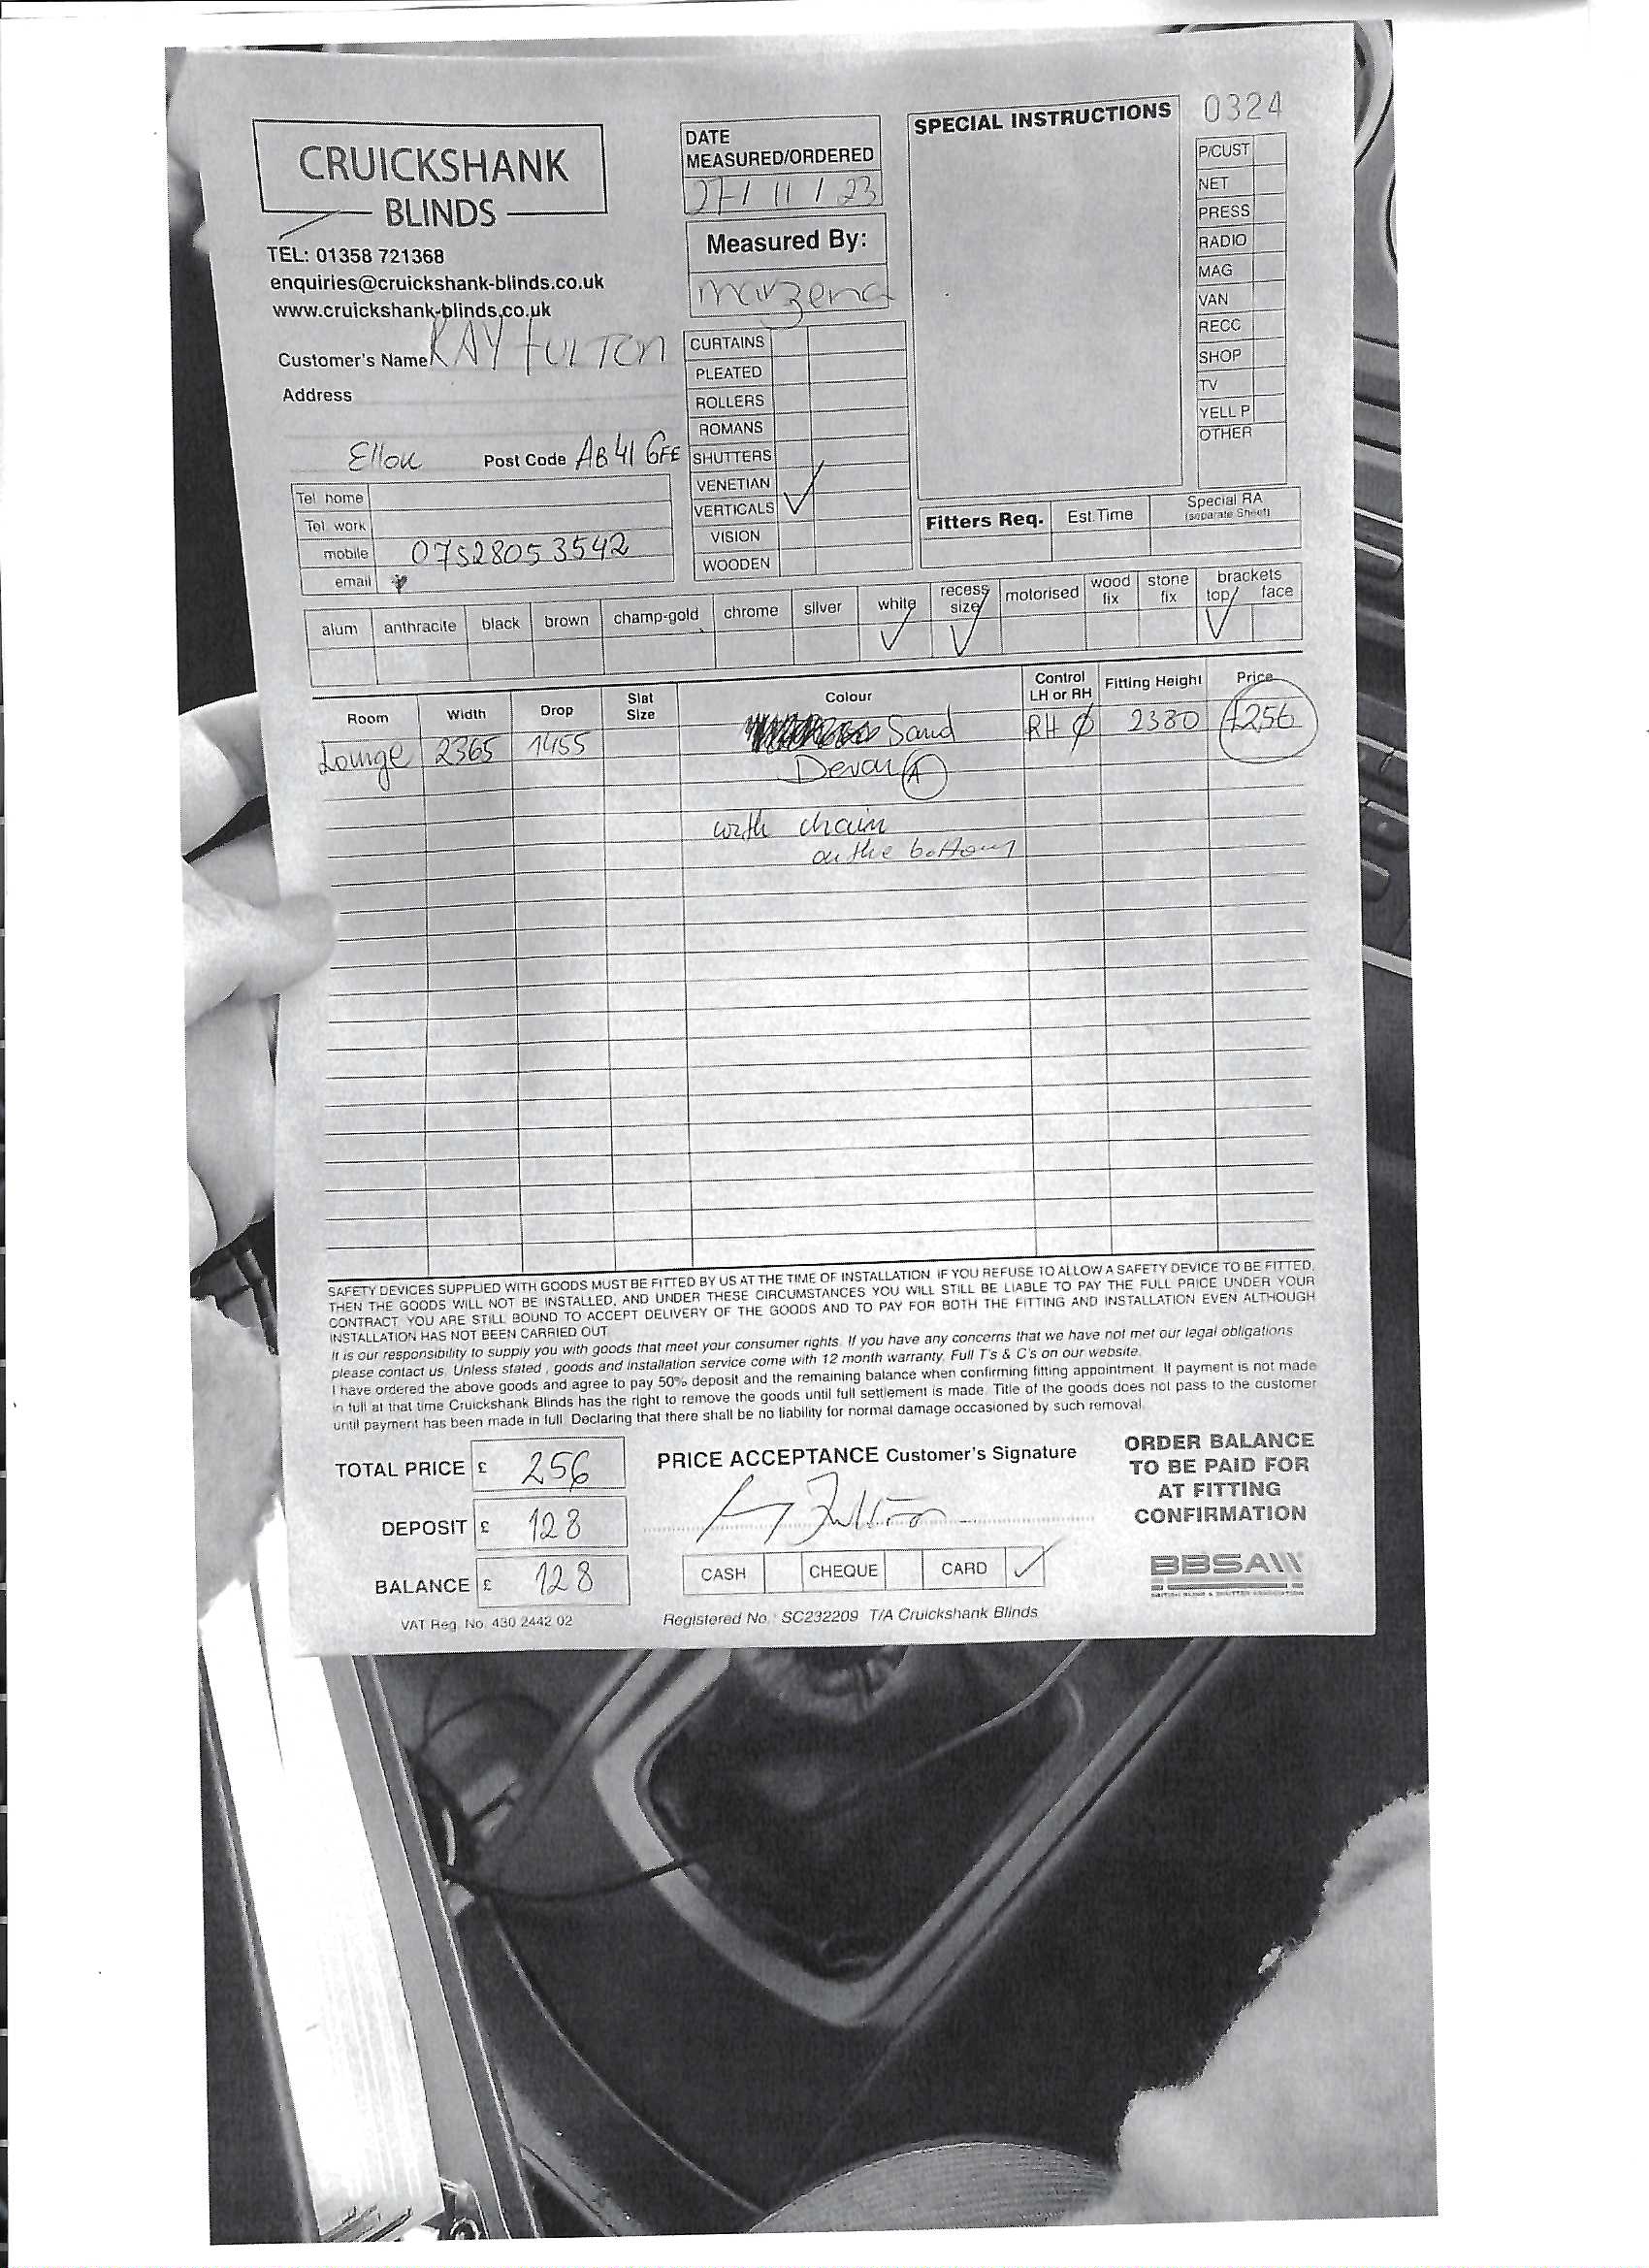 CRUICKSHANK
BLINDS
TEL: 01358 721368
enquiries@cruickshank-blinds.co.uk
www.cruickshank-blinds.co.uk
Customer's Name KAY FULTON
Address
Ellon Post Code AB41 6FE
Tel home
Tel work
mobile 07528053542
email
DATE
MEASURED/ORDERED
27/11/23
Measured By:
Marzena
CURTAINS
PLEATED
ROLLERS
ROMANS
SHUTTERS
VENETIAN
VERTICALS ✓
VISION
WOODEN
SPECIAL INSTRUCTIONS
0324
P/CUST
NET
PRESS
RADIO
MAG
VAN
RECC
SHOP
TV
YELL P
OTHER
Fitters Req. Est.Time Special RA
(separate Sheet)
alum anthracite black brown champ-gold chrome silver white recess size motorised wood fix stone fix brackets top face
✓ ✓ ✓
Room Width Drop Slat Size Colour Control LH or RH Fitting Height Price
Lounge 2365 1455 Sand RH 2380 £256
Devon A
with chain
on the bottom
SAFETY DEVICES SUPPLIED WITH GOODS MUST BE FITTED BY US AT THE TIME OF INSTALLATION. IF YOU REFUSE TO ALLOW A SAFETY DEVICE TO BE FITTED,
THEN THE GOODS WILL NOT BE INSTALLED, AND UNDER THESE CIRCUMSTANCES YOU WILL STILL BE LIABLE TO PAY THE FULL PRICE UNDER YOUR
CONTRACT. YOU ARE STILL BOUND TO ACCEPT DELIVERY OF THE GOODS AND TO PAY FOR BOTH THE FITTING AND INSTALLATION EVEN ALTHOUGH
INSTALLATION HAS NOT BEEN CARRIED OUT
It is our responsibility to supply you with goods that meet your consumer rights. If you have any concerns that we have not met our legal obligations
please contact us. Unless stated, goods and installation service come with 12 month warranty. Full T's & C's on our website.
I have ordered the above goods and agree to pay 50% deposit and the remaining balance when confirming fitting appointment. If payment is not made
in full at that time Cruickshank Blinds has the right to remove the goods until full settlement is made. Title of the goods does not pass to the customer
until payment has been made in full. Declaring that there shall be no liability for normal damage occasioned by such removal.
TOTAL PRICE £ 256
DEPOSIT £ 128
BALANCE £ 128
VAT Reg. No. 430 2442 02
PRICE ACCEPTANCE Customer's Signature
CASH CHEQUE CARD ✓
Registered No.: SC232209 T/A Cruickshank Blinds
ORDER BALANCE
TO BE PAID FOR
AT FITTING
CONFIRMATION
BBSA
BRITISH BLIND & SHUTTER ASSOCIATION